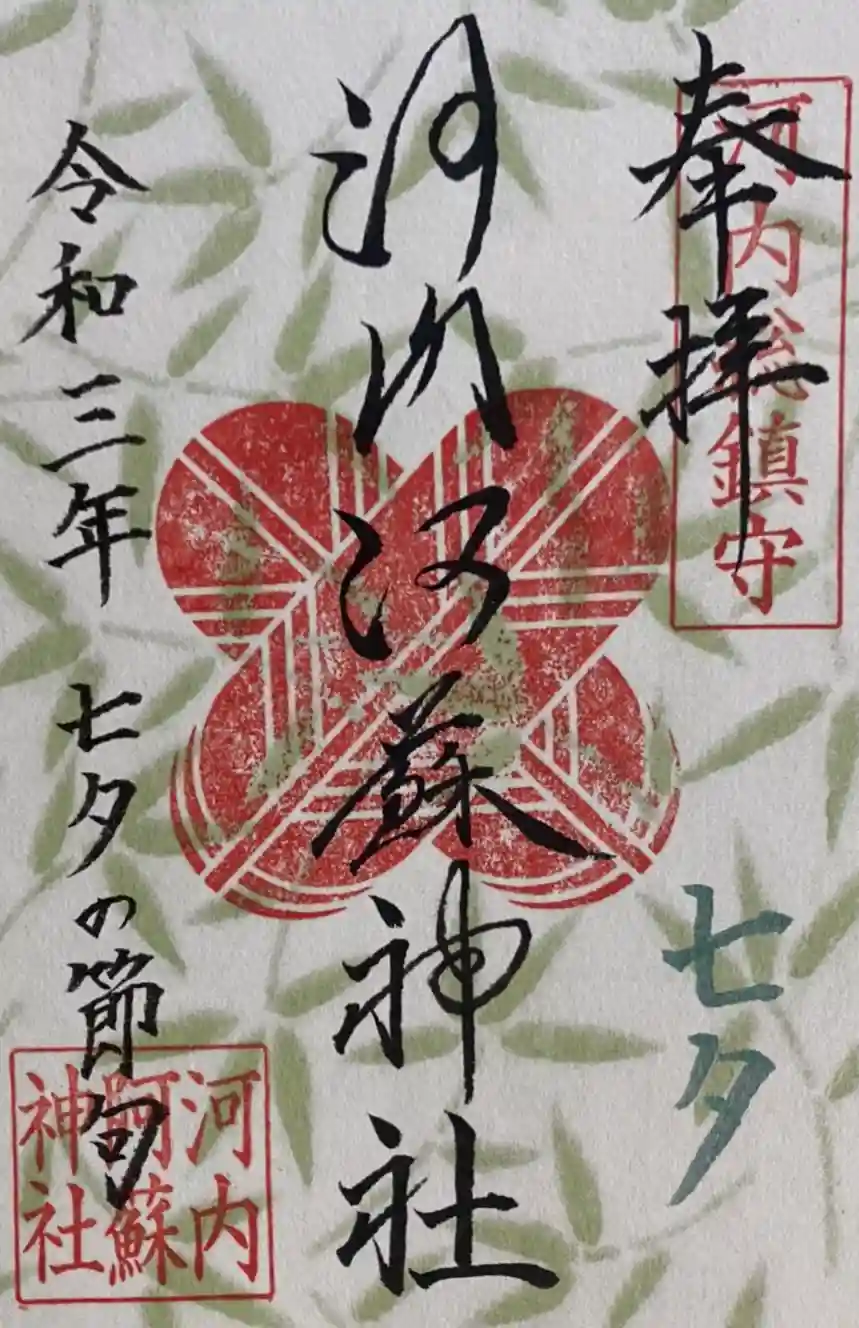 奉拝
河内総鎮守
七夕
河内阿蘇神社
令和三年 七夕の節句
河内
阿蘇
神社